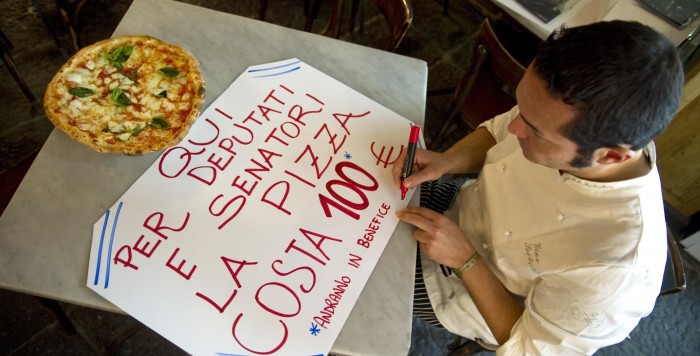 QUI
PER DEPUTATI
E SENATORI
LA PIZZA
COSTA 100* €
*ANDRANNO IN BENEFICE